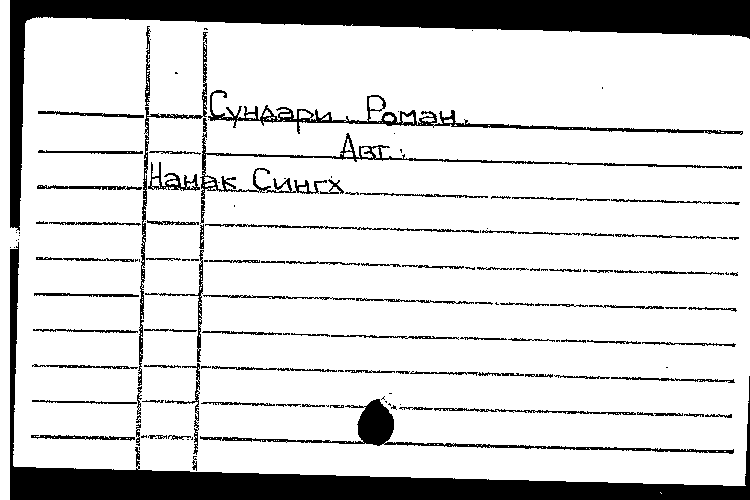 Сундари. Роман.
Авт.:
Нанак Сингх